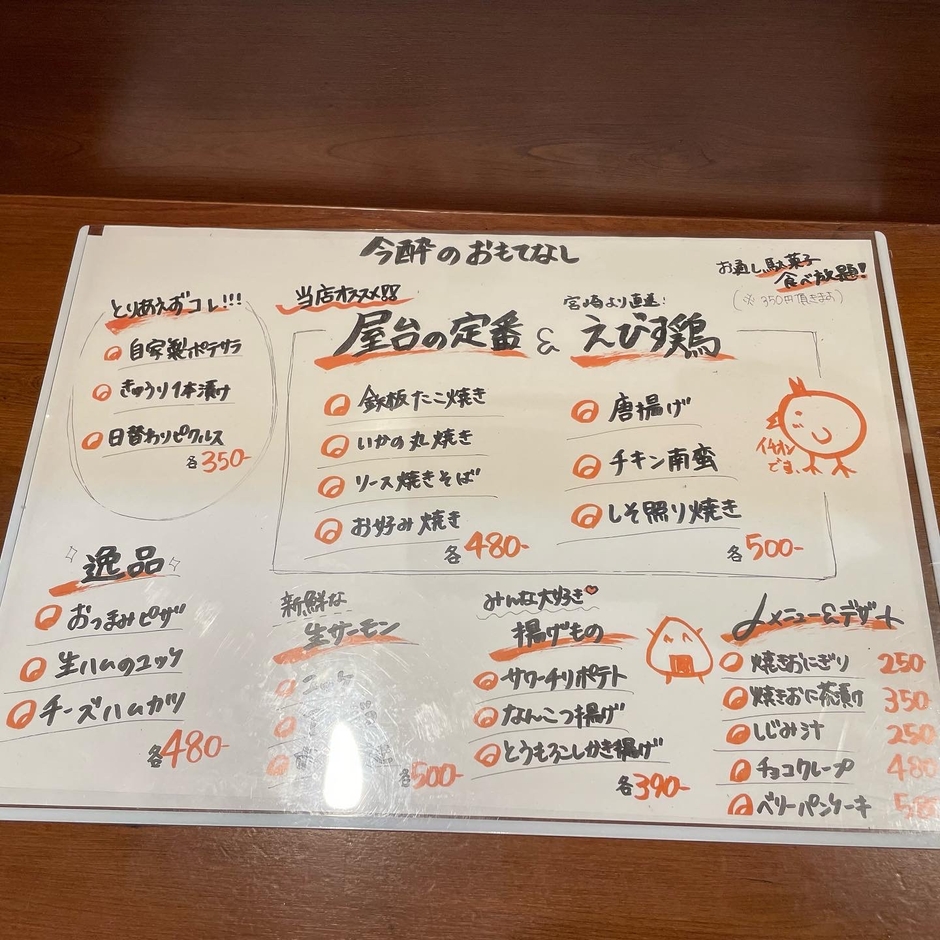 今酔のおもてなし
お通し、駄菓子
食べ放題!
(※350円頂きます)
とりあえずコレ!!!
自家製ポテサラ
きゅうり1本漬け
日替わりピクルス
各350-
当店オススメ!!
屋台の定番
&
宮崎より直送!
えびす鶏
鉄板たこ焼き
いかの丸焼き
ソース焼きそば
お好み焼き
各480-
唐揚げ
チキン南蛮
しそ照り焼き
各500-
イチオシ
です、
逸品
おつまみピザ
生ハムのユッケ
チーズハムカツ
各480-
新鮮な
生サーモン
ユッケ
各500-
みんな大好き
揚げもの
サワーチリポテト
なんこつ揚げ
とうもろこしかき揚げ
各390-
〆メニュー&デザート
焼きおにぎり 250-
焼きおに茶漬け 350-
しじみ汁 250-
チョコクレープ 480
ベリーパンケーキ